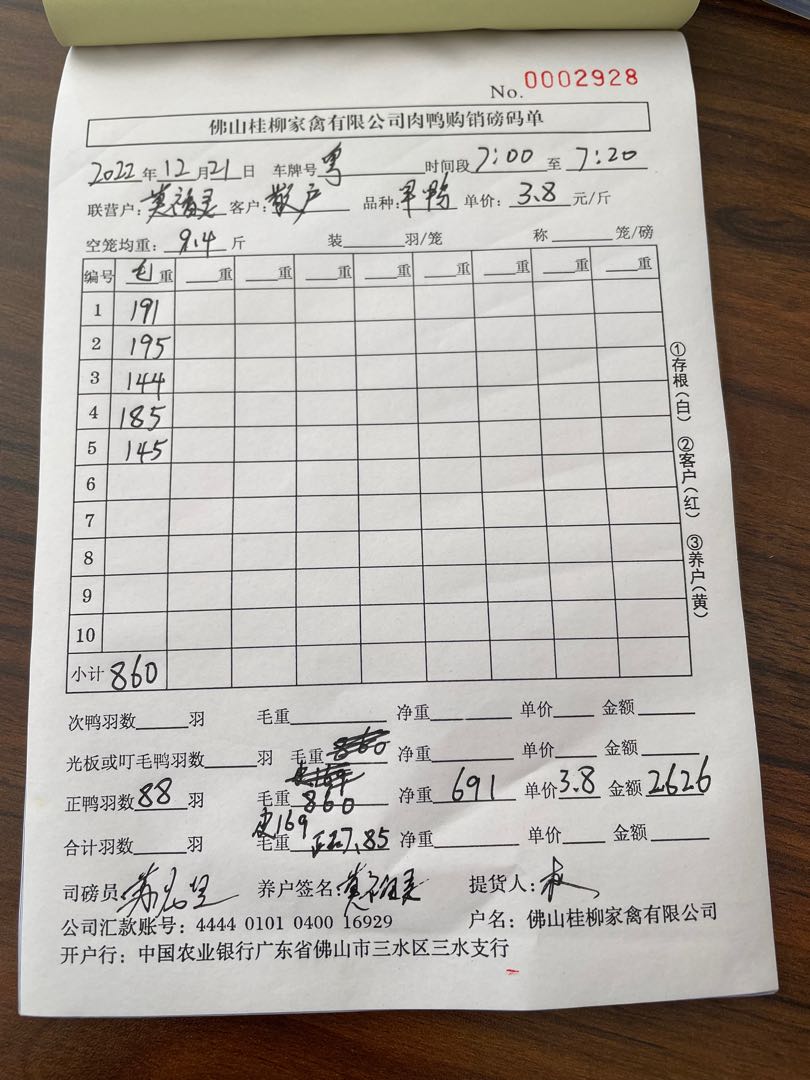 No. 0002928
佛山桂柳家禽有限公司肉鸭购销磅码单
2022年12月21日 车牌号 粤 时间段 7:00 至 7:20
联营户: 莫福灵 客户: 散户 品种: 单价: 3.8 元/斤
空笼均重: 9.4 斤 装 羽/笼 称 笼/磅
编号 毛重 重 重 重 重 重 重 重 重
1 191
2 195
3 144
4 185
5 145
6
7
8
9
10
小计 860
①存根(白) ②客户(红) ③养户(黄)
次鸭羽数 羽 毛重 净重 单价 金额
光板或叮毛鸭羽数 羽 毛重 860 净重 单价 金额
正鸭羽数 88 羽 毛重 860 净重 691 单价 3.8 金额 2626
合计羽数 羽 毛重 皮169 正27.85 净重 单价 金额
司磅员: 养户签名: 莫福灵 提货人:
公司汇款账号: 4444 0101 0400 16929 户名: 佛山桂柳家禽有限公司
开户行: 中国农业银行广东省佛山市三水区三水支行